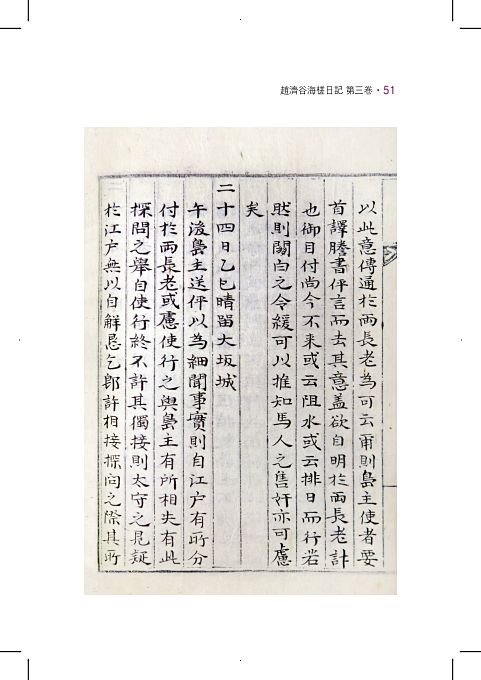 趙濟谷海槎日記 第三卷 · 51
以此意傳通於兩長老為可云甫則島主使者要
首譯謄書伻言而去其意盖欲自明於兩長老計
也御目付尚今不来或云阻水或云排日而行若
然則關白之令緩可以推知馬人之售奸亦可慮
矣
二十四日乙巳晴留大坂城
午後島主送伻以為細聞事實則自江户有所分
付於兩長老或慮使行之與島主有所相失有此
探問之舉自使行終不許其獨接則太守之見疑
於江户無以自解恳乞郎許相接探问之際其所